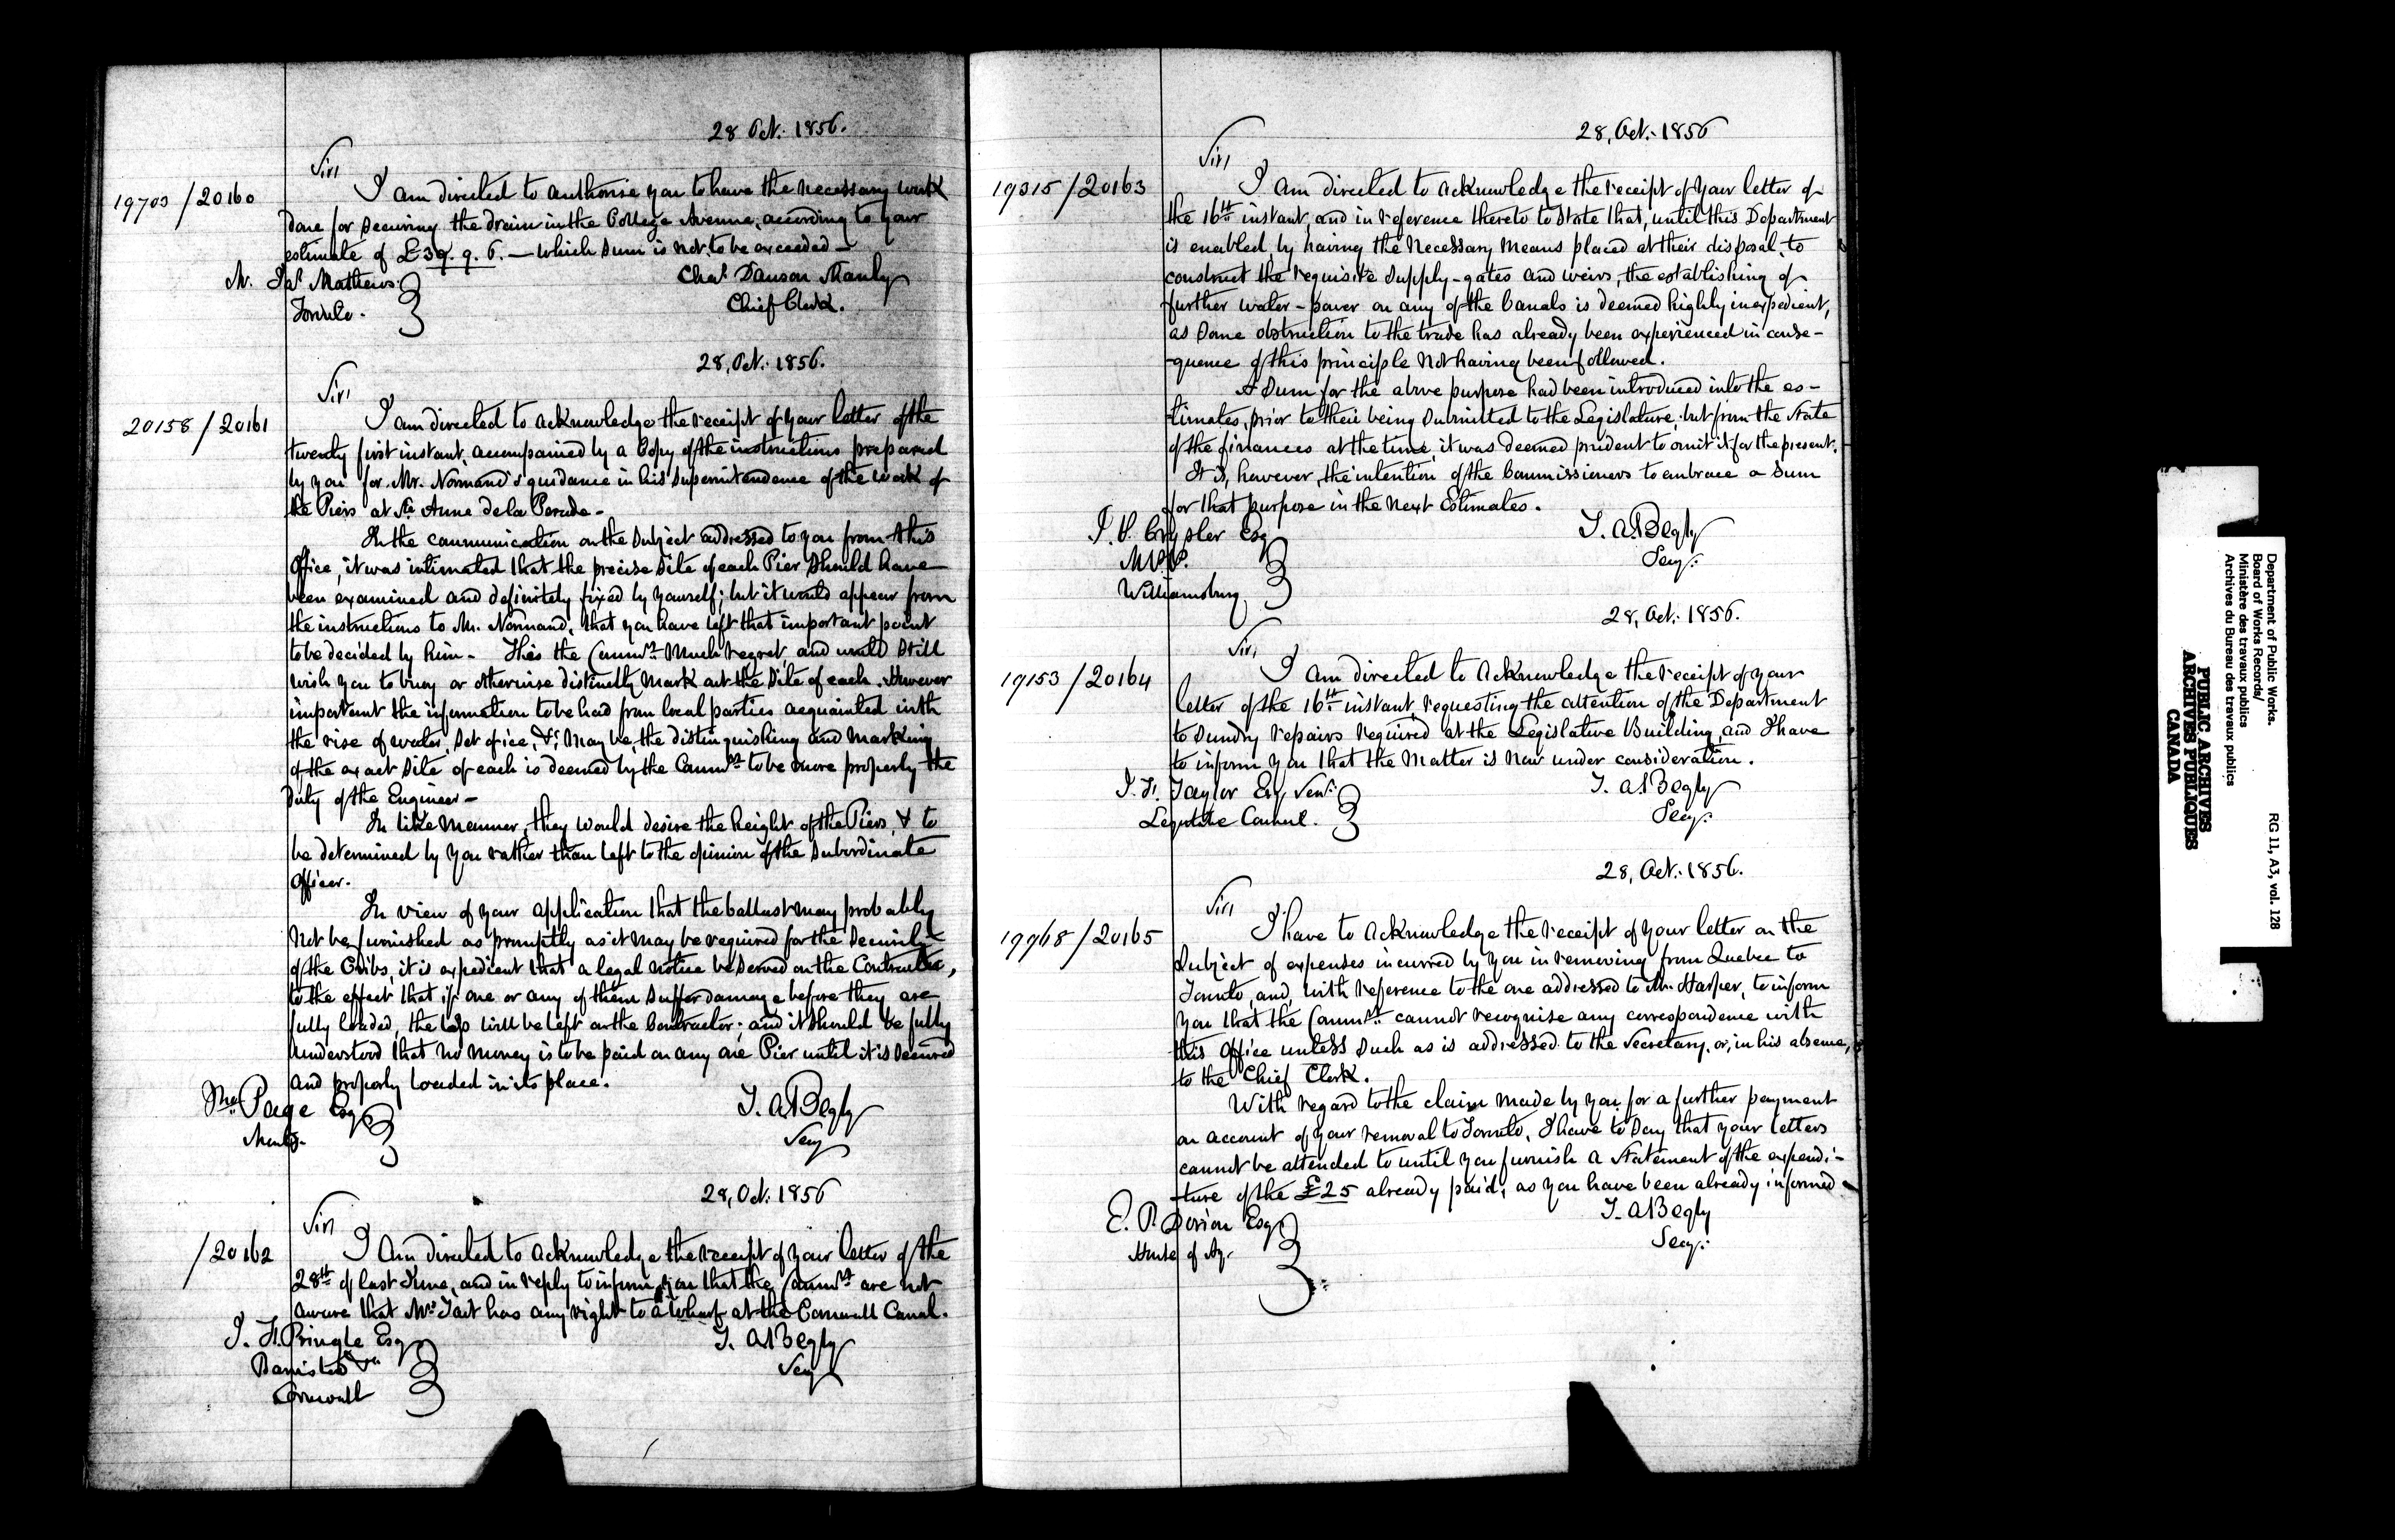 28 Oct: 1856.
Sir,
19703 / 20160
I am directed to authorise you to have the necessary work
done for securing the drain in the College Avenue, according to your
estimate of £39. 9. 6. — which sum is not to be exceeded —
Mr. Jas Mathews
Toronto.
Chas Dawson Manly
Chief Clerk.
28, Oct: 1856.
Sir,
20158 / 20161
I am directed to acknowledge the receipt of your letter of the
twenty first instant, accompanied by a Copy of the instructions prepared
by you for Mr. Normand's guidance in his Superintendence of the work of
the Piers at Ste Anne de la Perade -
In the communication on the subject addressed to you from this
Office, it was intimated that the precise site of each Pier should have
been examined and definitely fixed by yourself; but it would appear from
the instructions to Mr. Normand, that you have left that important point
to be decided by him - This the Commrs much regret, and would still
wish you to buoy or otherwise distinctly mark out the site of each. However
important the information to be had from local parties acquainted with
the rise of water, set of ice, &c; may be, the distinguishing and marking
of the exact site of each is deemed by the Commrs to be more properly the
duty of the Engineer -
In like manner, they would desire the height of the Piers, & to
be determined by you rather than left to the opinion of the subordinate
Officer.
In view of your application that the ballast may probably
not be furnished as promptly as it may be required for the security
of the Cribs, it is expedient that a legal notice be served on the Contractor,
to the effect that if one or any of them suffer damage before they are
fully loaded, the loss will be left on the Contractor; and it should be fully
understood that no money is to be paid on any one Pier until it is secured
and properly loaded in its place.
Jno. Page Esqr
T. A. Begly
Secy
28, Oct: 1856
Sir,
/ 20162
I am directed to acknowledge the receipt of your letter of the
28th of last June, and in reply to inform you that the Commrs are not
aware that Mrs Tait has any right to a wharf at the Cornwall Canal.
J. F. Pringle Esq
Barrister &c
Cornwall
T. A. Begly
Secy
28, Oct: 1856
Sir,
19315 / 20163
I am directed to acknowledge the receipt of your letter of
the 16th instant, and in reference thereto to state that, until this Department
is enabled, by having the necessary means placed at their disposal, to
construct the requisite supply-gates and weirs, the establishing of
further water-power on any of the Canals is deemed highly inexpedient,
as some obstruction to the trade has already been experienced in conse-
-quence of this principle not having been followed.
A sum for the above purpose had been introduced into the es-
timates, prior to their being submitted to the Legislature, but from the state
of the finances at the time, it was deemed prudent to omit it for the present.
It is, however, the intention of the Commissioners to embrace a sum
for that purpose in the next Estimates.
J. P. Crysler Esq
M.P.P.
Williamsburg
T. A. Begly
Secy:
28, Oct: 1856.
Sir,
19153 / 20164
I am directed to acknowledge the receipt of your
letter of the 16th instant, requesting the attention of the Department
to sundry repairs required at the Legislative Building, and I have
to inform you that the matter is now under consideration.
J. F. Taylor Esq, Senr.
Legislative Council.
T. A. Begly
Secy:
28, Oct: 1856.
Sir,
19968 / 20165
I have to acknowledge the receipt of your letter on the
subject of expenses incurred by you in removing from Quebec to
Toronto, and, with reference to the one addressed to Mr. Harper, to inform
you that the Commrs. cannot recognise any correspondence with
this Office unless such as is addressed to the Secretary, or, in his absence,
to the Chief Clerk.
With regard to the claim made by you for a further payment
on account of your removal to Toronto, I have to say that your letters
cannot be attended to until you furnish a statement of the expendi-
-ture of the £25 already paid, as you have been already informed -
E. P. Dorion Esq
House of Ay.
T. A. Begly
Secy:
Department of Public Works.
Board of Works Records/
Ministère des travaux publics
Archives du Bureau des travaux publics
RG 11, A3, vol. 128
PUBLIC ARCHIVES
ARCHIVES PUBLIQUES
CANADA